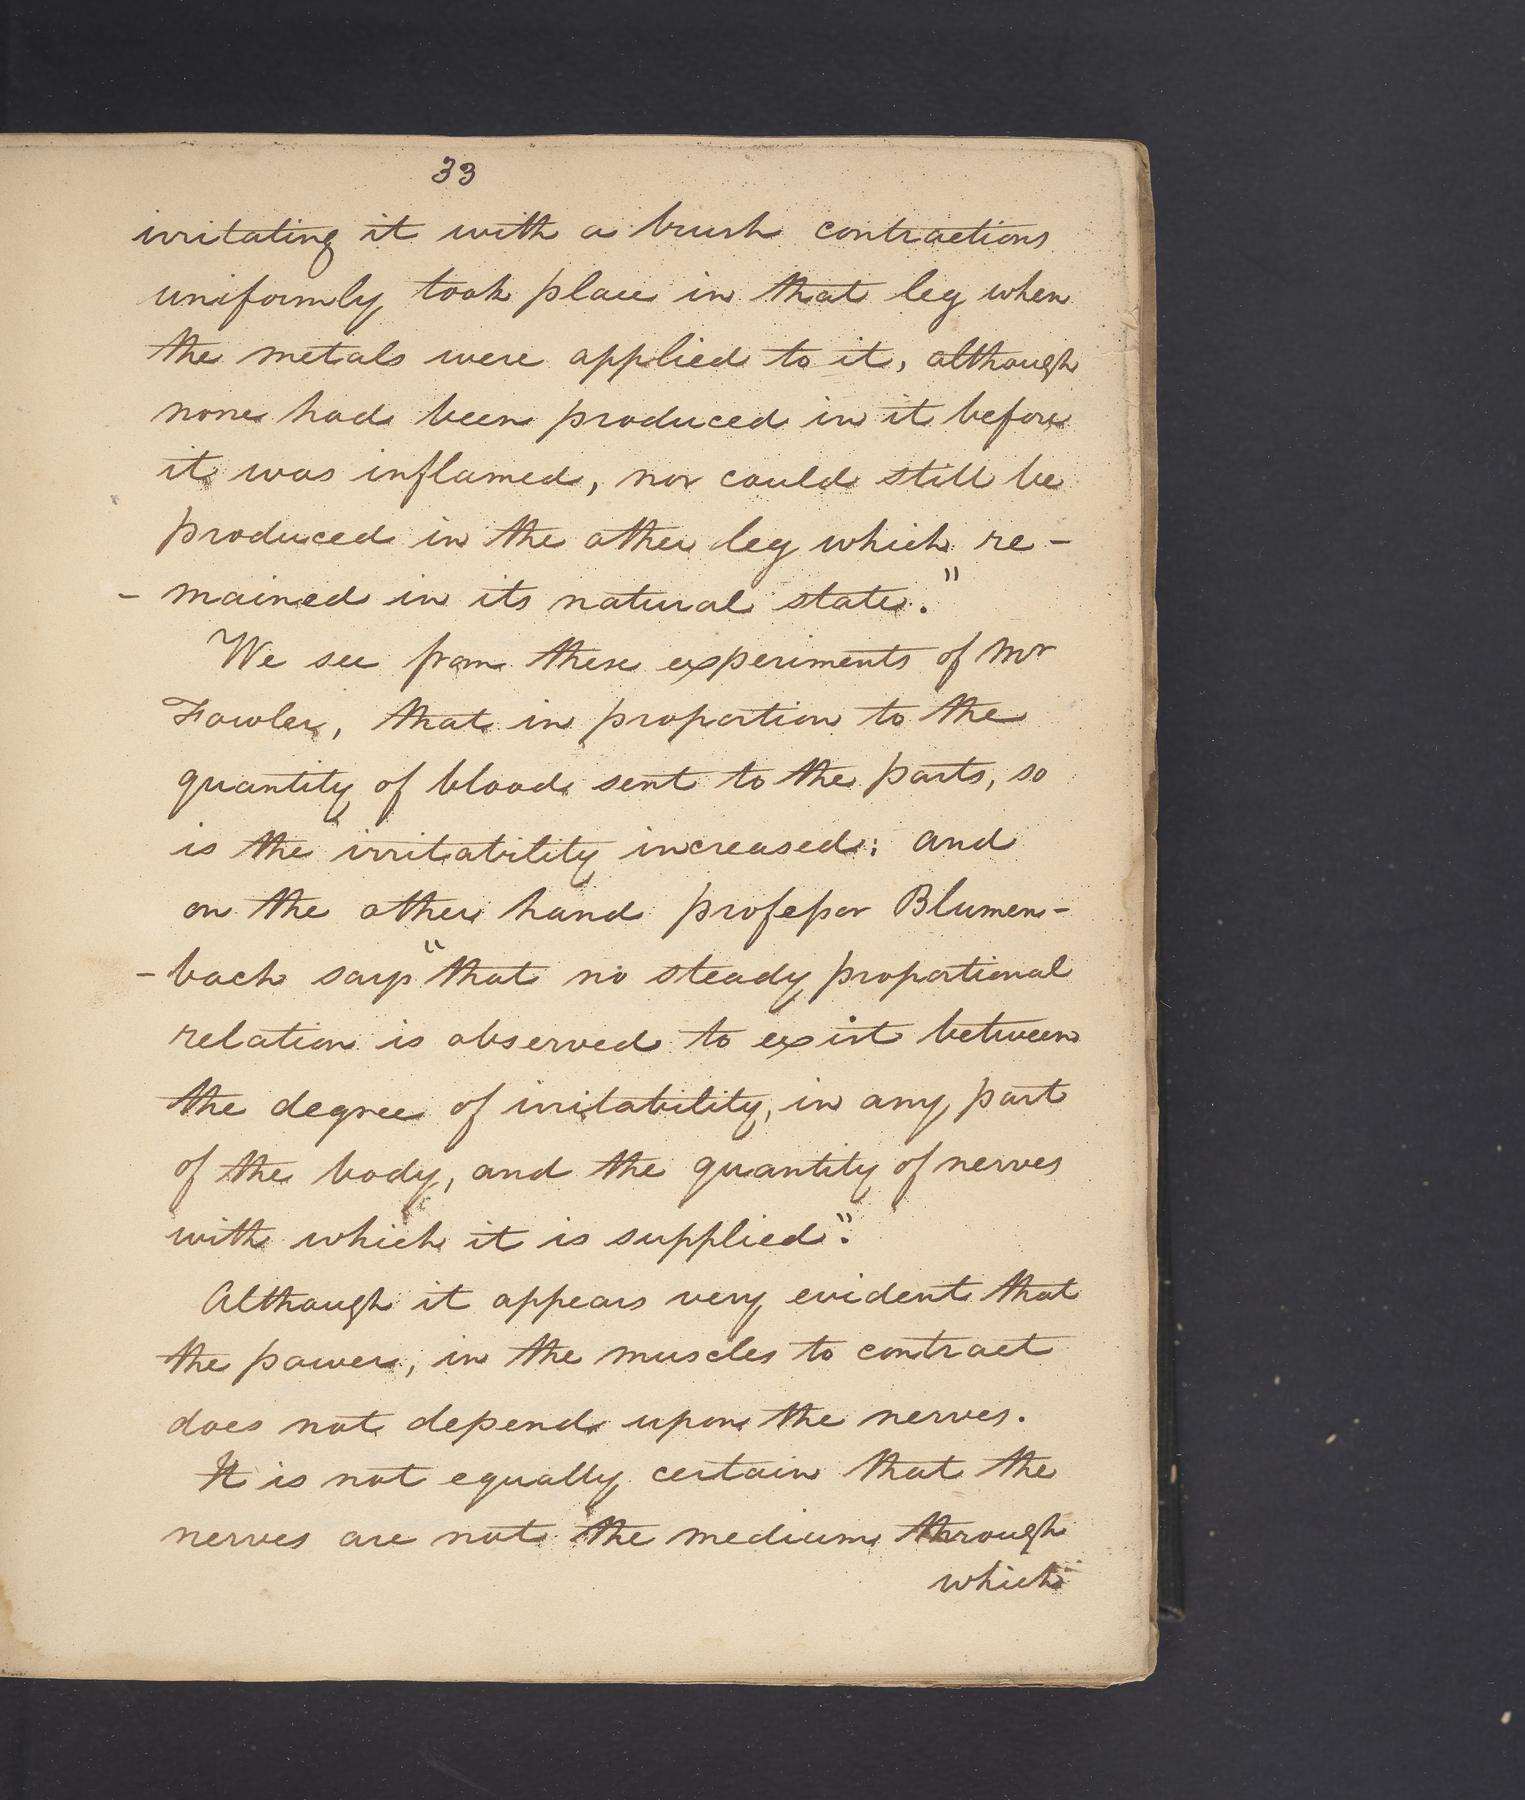 33
irritating it with a brush contractions
uniformly took place in that leg when
the metals were applied to it, although
none had been produced in it before
it was inflamed, nor could still be
produced in the other leg which re-
- mained in its natural state."
We see from these experiments of Mr
Fowler, that in proportion to the
quantity of blood sent to the parts, so
is the irritability increased: and
on the other hand professor Blumen-
- bach says "that no steady proportional
relation is observed to exist between
the degree of irritability, in any part
of the body, and the quantity of nerves
with which it is supplied".
Although it appears very evident that
the power, in the muscles to contract
does not depend upon the nerves.
It is not equally certain that the
nerves are not the medium through
which